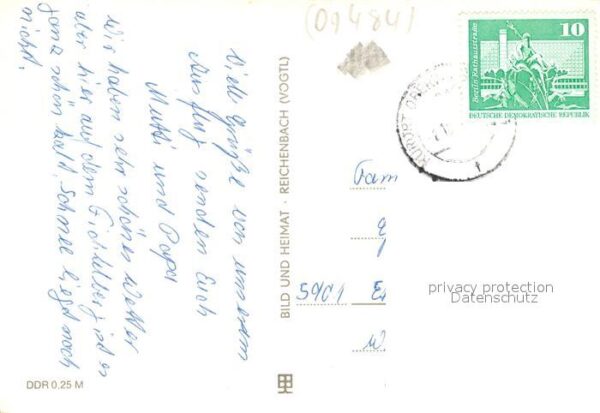 (09484)
10
Berlin, Rathausstraße
DEUTSCHE DEMOKRATISCHE REPUBLIK
KURORT OBER
Viele Grüße von unserem
Ausflug senden Euch
Mutti und Papa
Wir haben sehr schönes Wetter
aber hier auf dem Fichtelberg ist es
ganz schön kalt. Schnee liegt noch
nicht.
BILD UND HEIMAT · REICHENBACH (VOGTL)
Fam
5901
privacy protection
Datenschutz
DDR 0,25 M